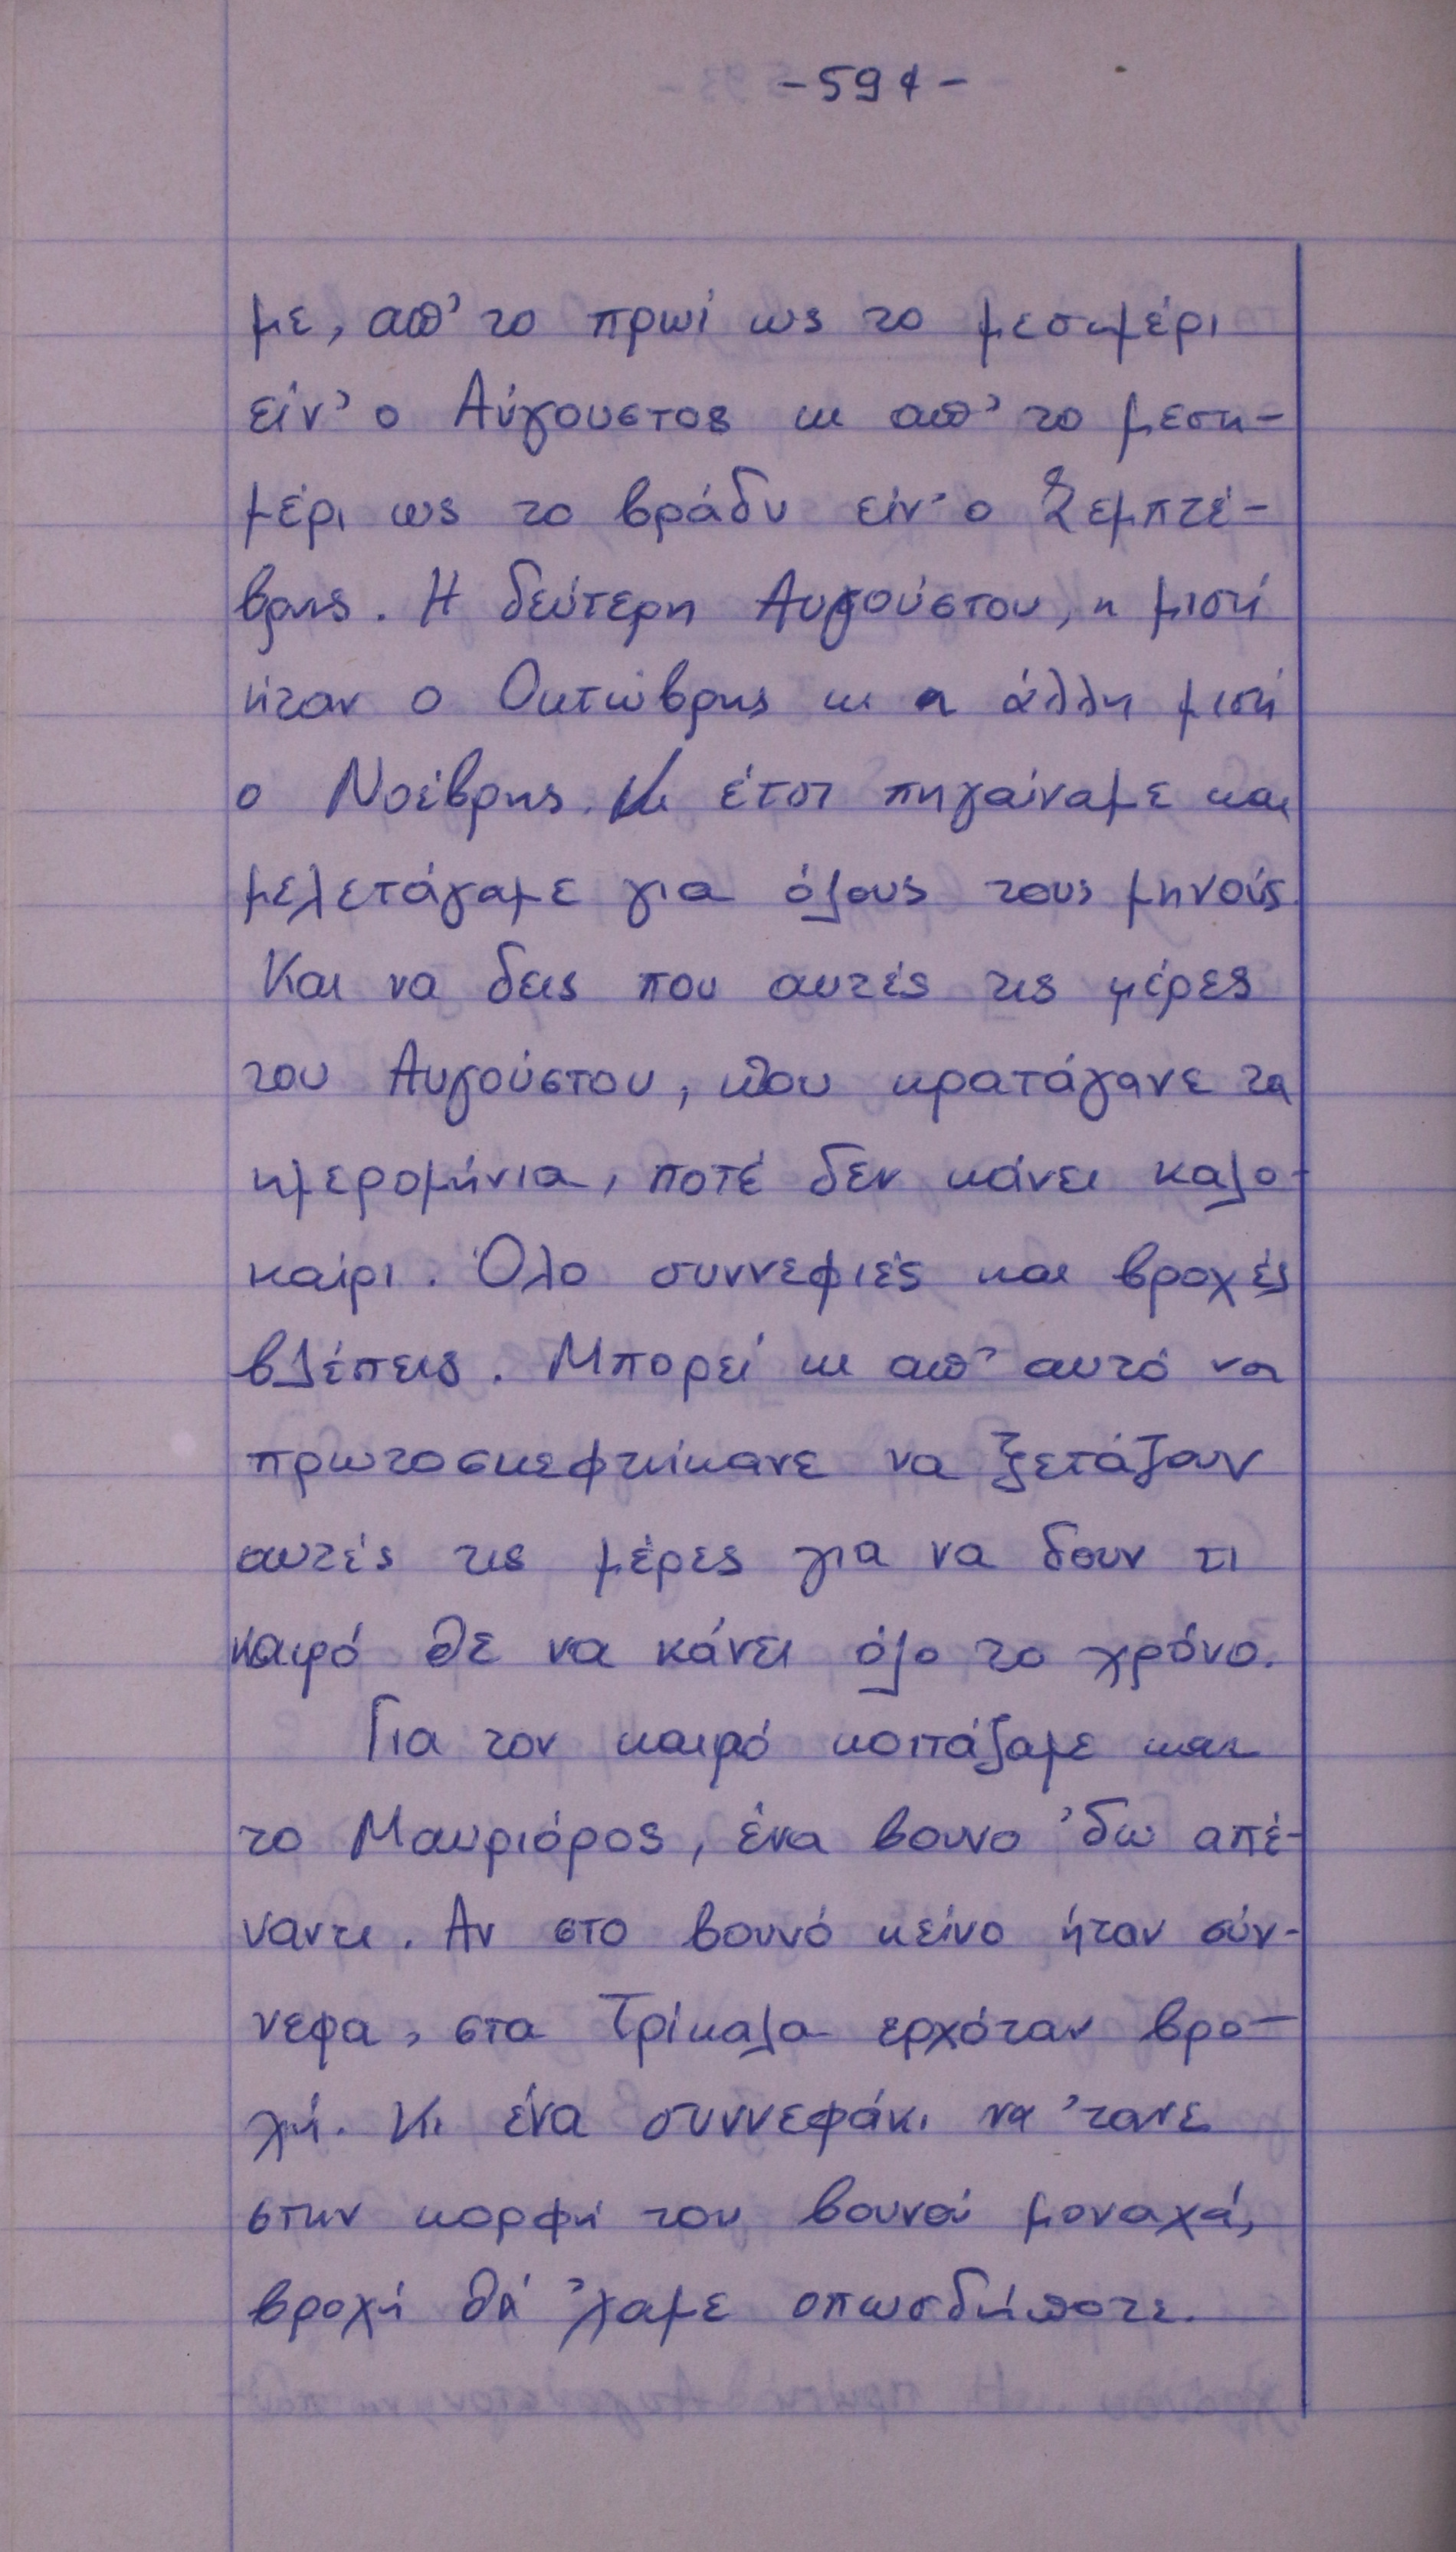 -594-
με, απ' το πρωί ως το μεσημέρι
είν' ο Αύγουστος κι απ' το μεση-
μέρι ως το βράδυ είν' ο Σεμπτέ-
βρης. Η δεύτερη Αυγούστου, η μισή
ήταν ο Οκτώβρης κι η άλλη μισή
ο Νοέβρης. Κι έτσι πηγαίναμε και
μελετάγαμε για όλους τους μηνούς.
Και να δεις που αυτές τις μέρες
του Αυγούστου, που κρατάγανε τα
ημερομήνια, ποτέ δεν κάνει καλο-
καίρι. Όλο συννεφιές και βροχές
βλέπεις. Μπορεί κι απ' αυτό να
πρωτοσκεφτήκανε να ξετάζουν
αυτές τις μέρες για να δουν τι
καιρό θε να κάνει όλο το χρόνο.
Για τον καιρό κοιτάζαμε και
το Μαυριόρος, ένα βουνο 'δω απέ-
ναντι. Αν στο βουνό κείνο ήταν σύν-
νεφα, στα Τρίκαλα ερχόταν βρο-
χή. Κι ένα συννεφάκι να 'τανε
στην κορφή του βουνού μοναχά,
βροχή θά 'χαμε οπωσδήποτε.